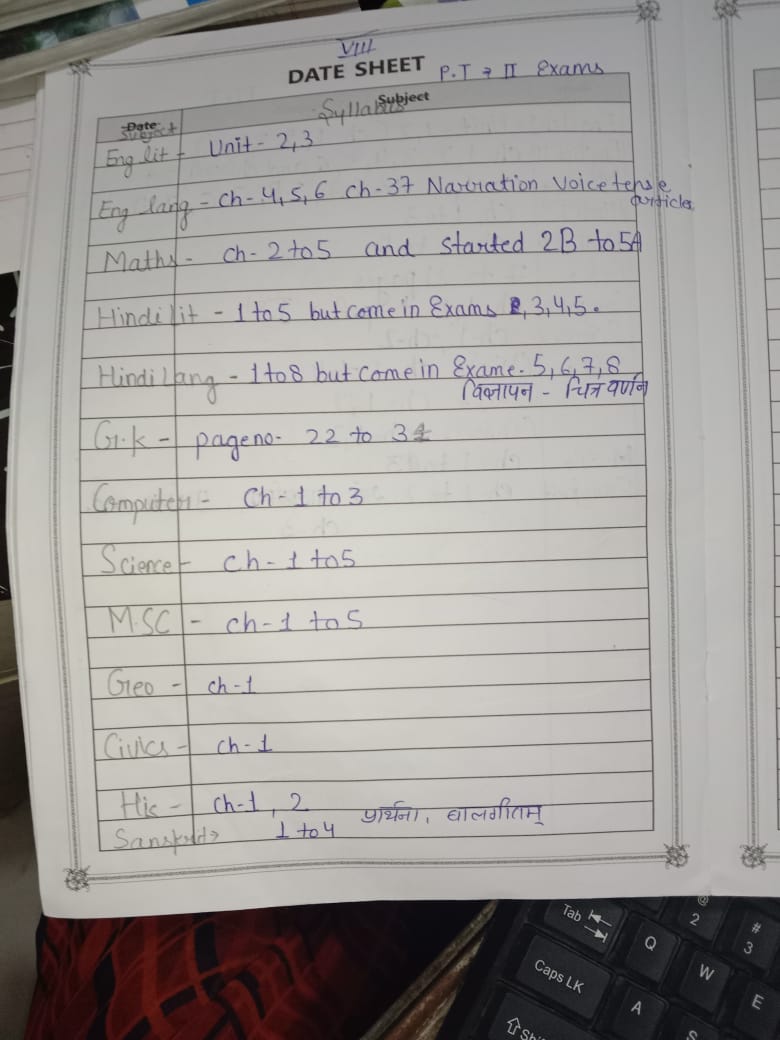 VIII
DATE SHEET P.T → II Exams
Date Subject
Subject Syllabus
Eng lit - Unit - 2,3
Eng lang - Ch- 4,5,6 Ch-37 Narration Voice tense
articles
Maths - Ch- 2 to 5 and started 2B to 5A
Hindi lit - 1 to 5 but come in Exams 2,3,4,5.
Hindi Lang - 1 to 8 but come in Exame. 5,6,7,8
विज्ञापन - चित्र वर्णन
G.k - page no- 22 to 34
Computer - Ch- 1 to 3
Science - Ch- 1 to 5
M.SC - Ch- 1 to 5
Geo - ch-1
Civics - ch-1
His - ch-1, 2
Sanskrit → 1 to 4 प्रार्थना, बालगीतम्
Tab
Caps LK
Q
W
E
A
S
@
2
#
3